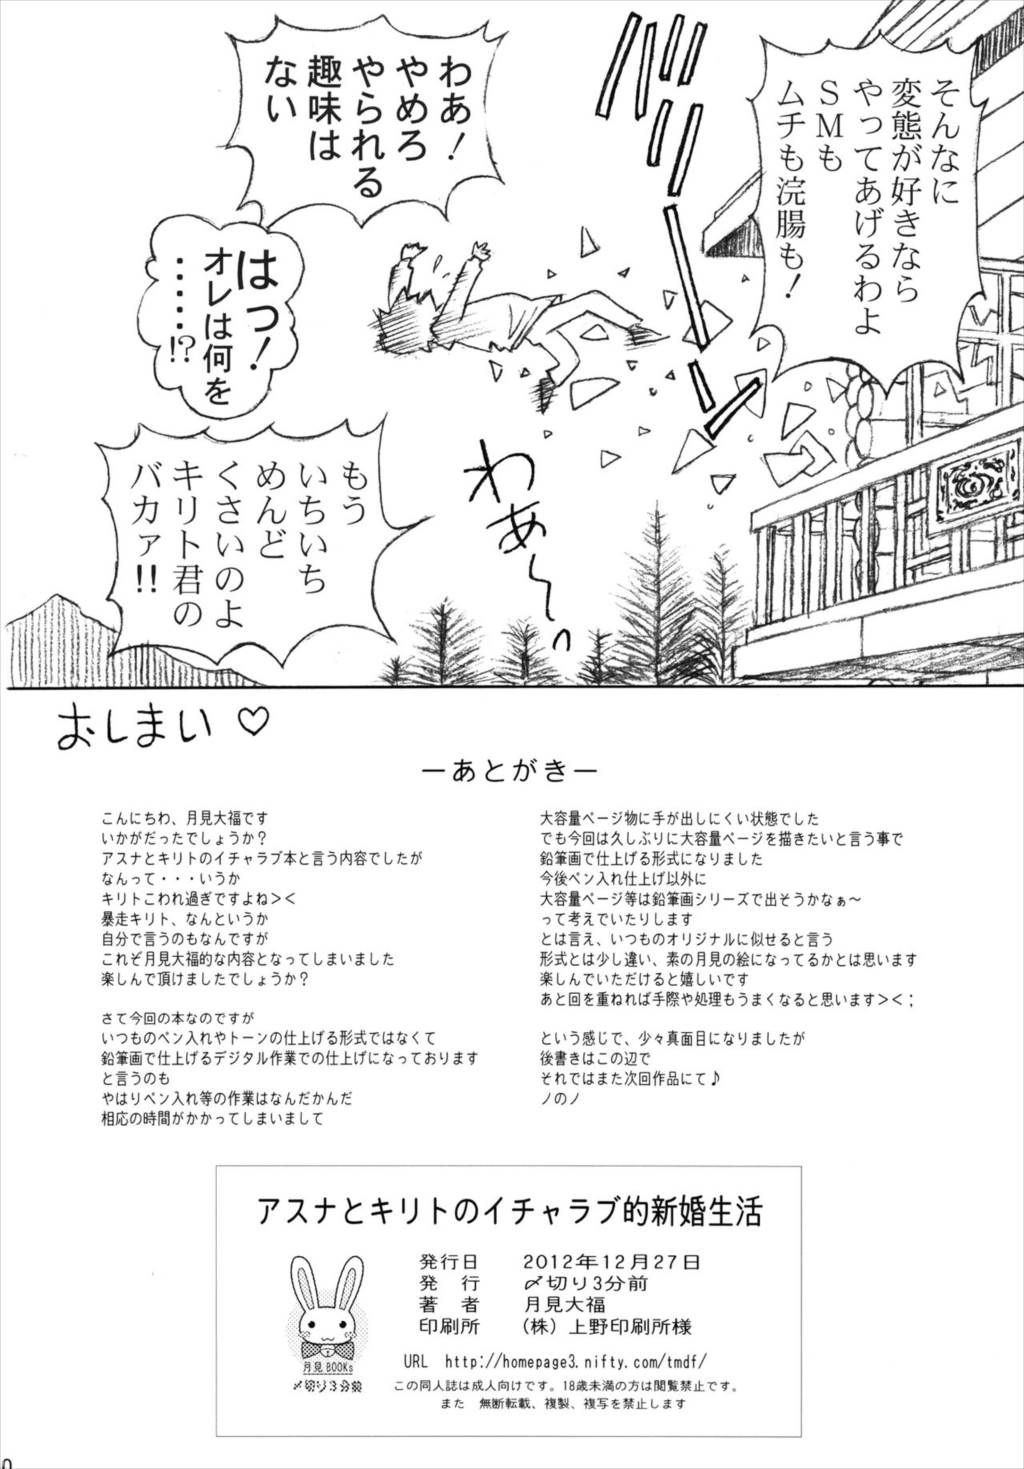 そんなに
変態が好きなら
やってあげるわよ
SMも
ムチも浣腸も！
わあ！
やめろ
やられる
趣味は
ない
はっ！
オレは何を
……!?
わあ〜っ
もう
いちいち
めんど
くさいのよ
キリト君の
バカァ!!
おしまい♡
ーあとがきー
こんにちわ、月見大福です
いかがだったでしょうか？
アスナとキリトのイチャラブ本と言う内容でしたが
なんって・・・いうか
キリトこわれ過ぎですよね＞＜
暴走キリト、なんというか
自分で言うのもなんですが
これぞ月見大福的な内容となってしまいました
楽しんで頂けましたでしょうか？
さて今回の本なのですが
いつものペン入れやトーンの仕上げる形式ではなくて
鉛筆画で仕上げるデジタル作業での仕上げになっております
と言うのも
やはりペン入れ等の作業はなんだかんだ
相応の時間がかかってしまいまして
大容量ページ物に手が出しにくい状態でした
でも今回は久しぶりに大容量ページを描きたいと言う事で
鉛筆画で仕上げる形式になりました
今後ペン入れ仕上げ以外に
大容量ページ等は鉛筆画シリーズで出そうかなぁ〜
って考えでいたりします
とは言え、いつものオリジナルに似せると言う
形式とは少し違い、素の月見の絵になってるかとは思います
楽しんでいただけると嬉しいです
あと回を重ねれば手際や処理もうまくなると思います＞＜；
という感じで、少々真面目になりましたが
後書きはこの辺で
それではまた次回作品にて♪
ノのノ
アスナとキリトのイチャラブ的新婚生活
発行日 2012年12月27日
発 行 〆切り3分前
著 者 月見大福
印刷所 （株）上野印刷所様
月見BOOKs
〆切り3分前
URL http://homepage3.nifty.com/tmdf/
この同人誌は成人向けです。18歳未満の方は閲覧禁止です。
また 無断転載、複製、複写を禁止します